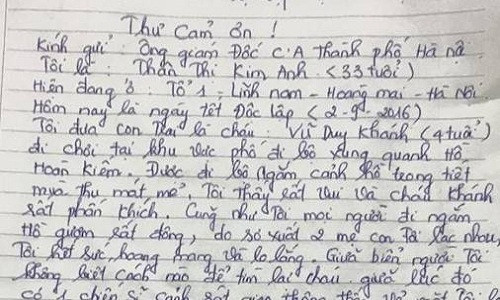 Thư Cảm ơn !
Kính gửi : Ông giám Đốc C.A Thành phố Hà nội
Tôi là : Thân Thị Kim Anh . (33 tuổi)
Hiện đang ở : Tổ 1, Lĩnh nam - Hoàng mai - Hà Nội.
Hôm nay là ngày tết Độc lập (2-9-2016)
Tôi đưa con trai là cháu : Vũ Duy Khánh (4 tuổi)
đi chơi tại khu vực phố đi bộ xung quanh Hồ
Hoàn Kiếm. Được đi bộ ngắm cảnh hồ trong tiết
mùa thu mát mẻ, Tôi thấy rất vui và cháu Khánh
rất phấn khích. Cũng như Tôi mọi người đi ngắm
Hồ gươm rất đông, do sơ xuất 2 mẹ con Tôi lạc nhau,
Tôi hết sức, hoang mang và lo lắng. Giữa biển người Tôi
không biết cách nào để tìm lại cháu, giữa lúc đó
có 1 chiến sĩ cảnh sát giao thông